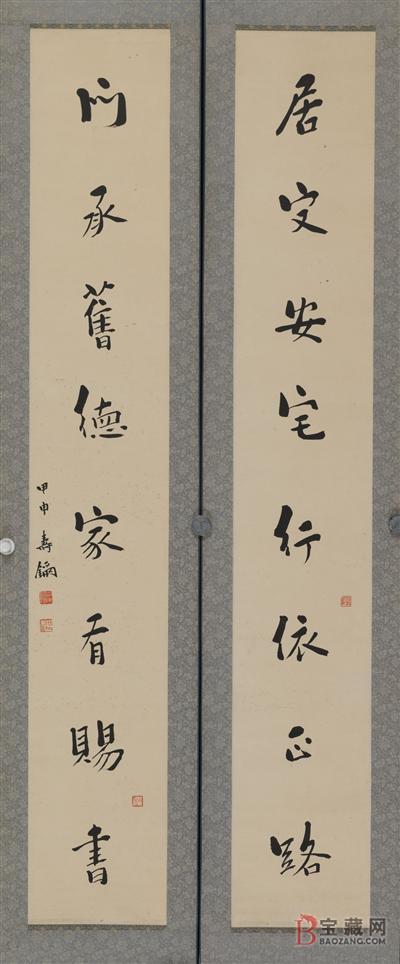 居
安
宅
行
依
正
路
門
承
舊
德
家
有
賜
書
甲申 壽鏞
宝藏网
BAOZANG.COM